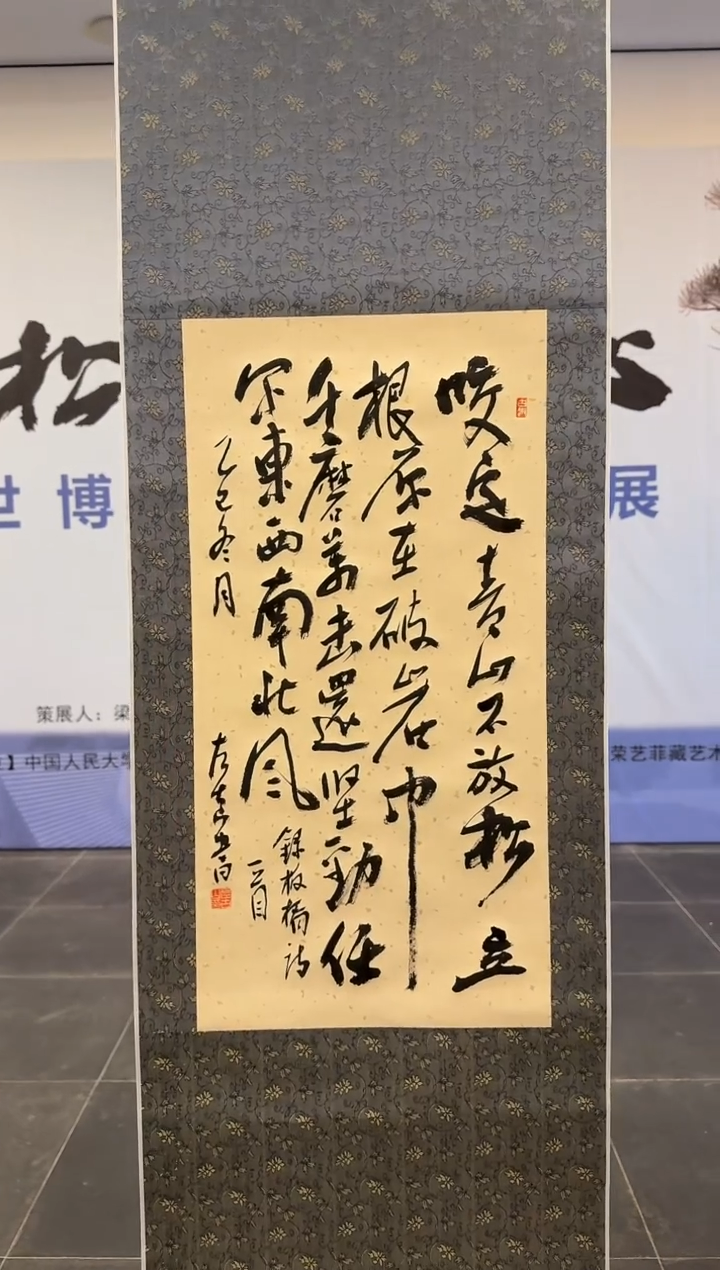 咬定青山不放松立
根原在破岩中
千磨萬击還坚勁任
尔東西南北风
錄板橋詩
一首
乙巳冬月
松
世博
展
策展人：梁
】中国人民大
荣艺菲藏艺术